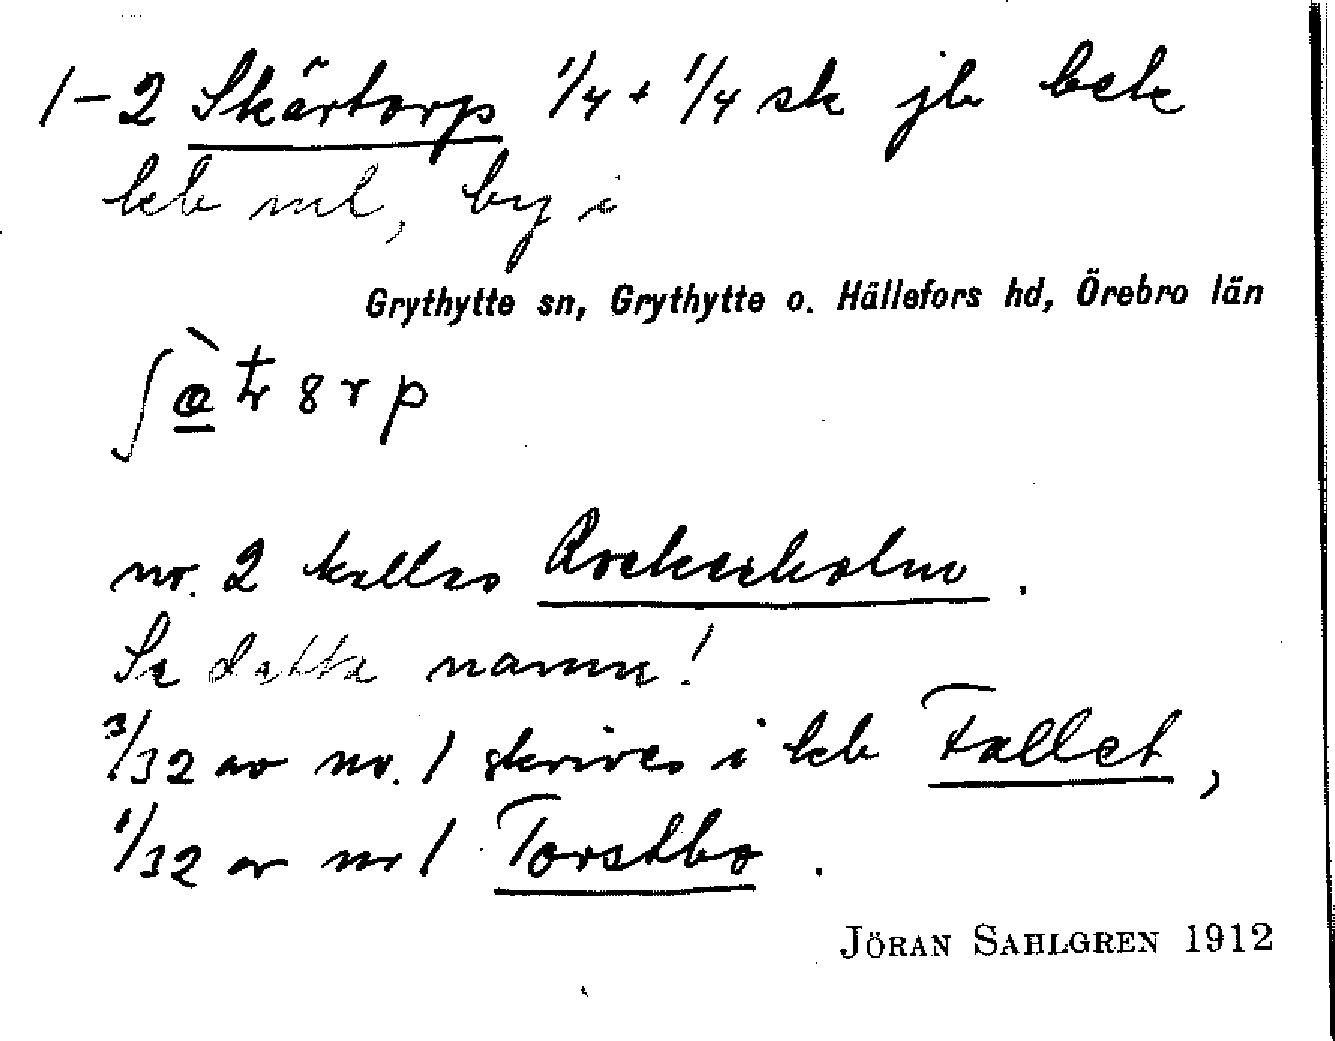 1-2 Skärtorp 1/4 + 1/4 sk jb bek
kb ml, by i
Grythytte sn, Grythytte o. Hällefors hd, Örebro län
nr. 2 kallas
Se detta namn!
3/32 av nr. 1 skrives i kb Fallet,
1/32 av nr 1 Torstbo.
JÖRAN SAHLGREN 1912